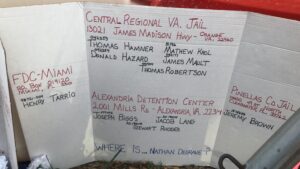 CENTRAL REGIONAL VA. JAIL
13021 JAMES MADISON HWY - ORANGE
VA. 22960
THOMAS HAMNER
MATHEW
DONALD HAZARD
JAMES MAULT
THOMAS ROBERTSON
FDC-MIAMI
PO BOX
MIAMI, FL
HENRY TARRIO
ALEXANDRIA DETENTION CENTER
2001 MILLS RD - ALEXANDRIA, VA 22314
JOSEPH BIGGS
JACOB LANG
STEWART RHODES
PINELLAS CO. JAIL
JEREMY BROWN
WHERE IS... NATHAN DEGRAVE?